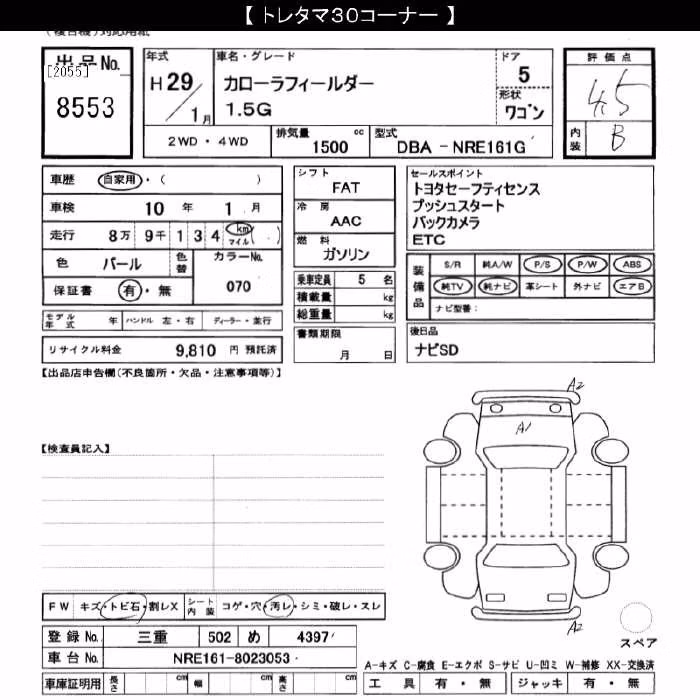 【 トレタマ30コーナー 】
(複合機)対応用紙
出品No.
[2055]
8553
年式
H 29/1月
車名・グレード
カローラフィールダー
1.5G
ドア
5
形状
ワゴン
評価点
4.5
内装
B
2WD・4WD
排気量
1500 cc
型式
DBA - NRE161G
車歴 自家用・( )
車検 10 年 1 月
走行 8万 9千 1 3 4 km マイル ( )
色 パール 色替 カラーNo.
保証書 有・無 070
モデル年式 年 ハンドル 左・右 ディーラー・並行
リサイクル料金 9,810 円 預託済
シフト
FAT
冷房
AAC
燃料
ガソリン
乗車定員 5 名
積載量 kg
総重量 kg
書類期限
月 日
セールスポイント
トヨタセーフティセンス
プッシュスタート
バックカメラ
ETC
装備品
S/R 純A/W P/S P/W ABS
純TV 純ナビ 革シート 外ナビ エアB
ナビ型番:
後日品
ナビSD
【出品店申告欄(不良箇所・欠品・注意事項等)】
【検査員記入】
A2
A1
A2
スペア
FW キズ・トビ石・割レX シート内装 コゲ・穴・汚レ・シミ・破レ・スレ
登録No. 三重 502 め 4397
車台No. NRE161-8023053
車庫証明用 長さ cm 幅 cm 高さ cm
A-キズ C-腐食 E-エクボ S-サビ U-凹ミ W-補修 XX-交換済
工具 有・無 ジャッキ 有・無